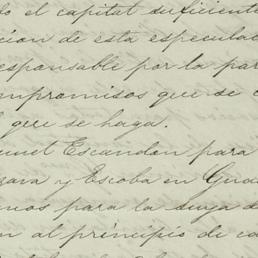 do el capital suficiente
cion de esta especulac
responsable por la par
ompromisos que se c
l que se haga.
nuel Escandon para
zava y Escoba en Gua
nos para la suya d
n al principio de ca